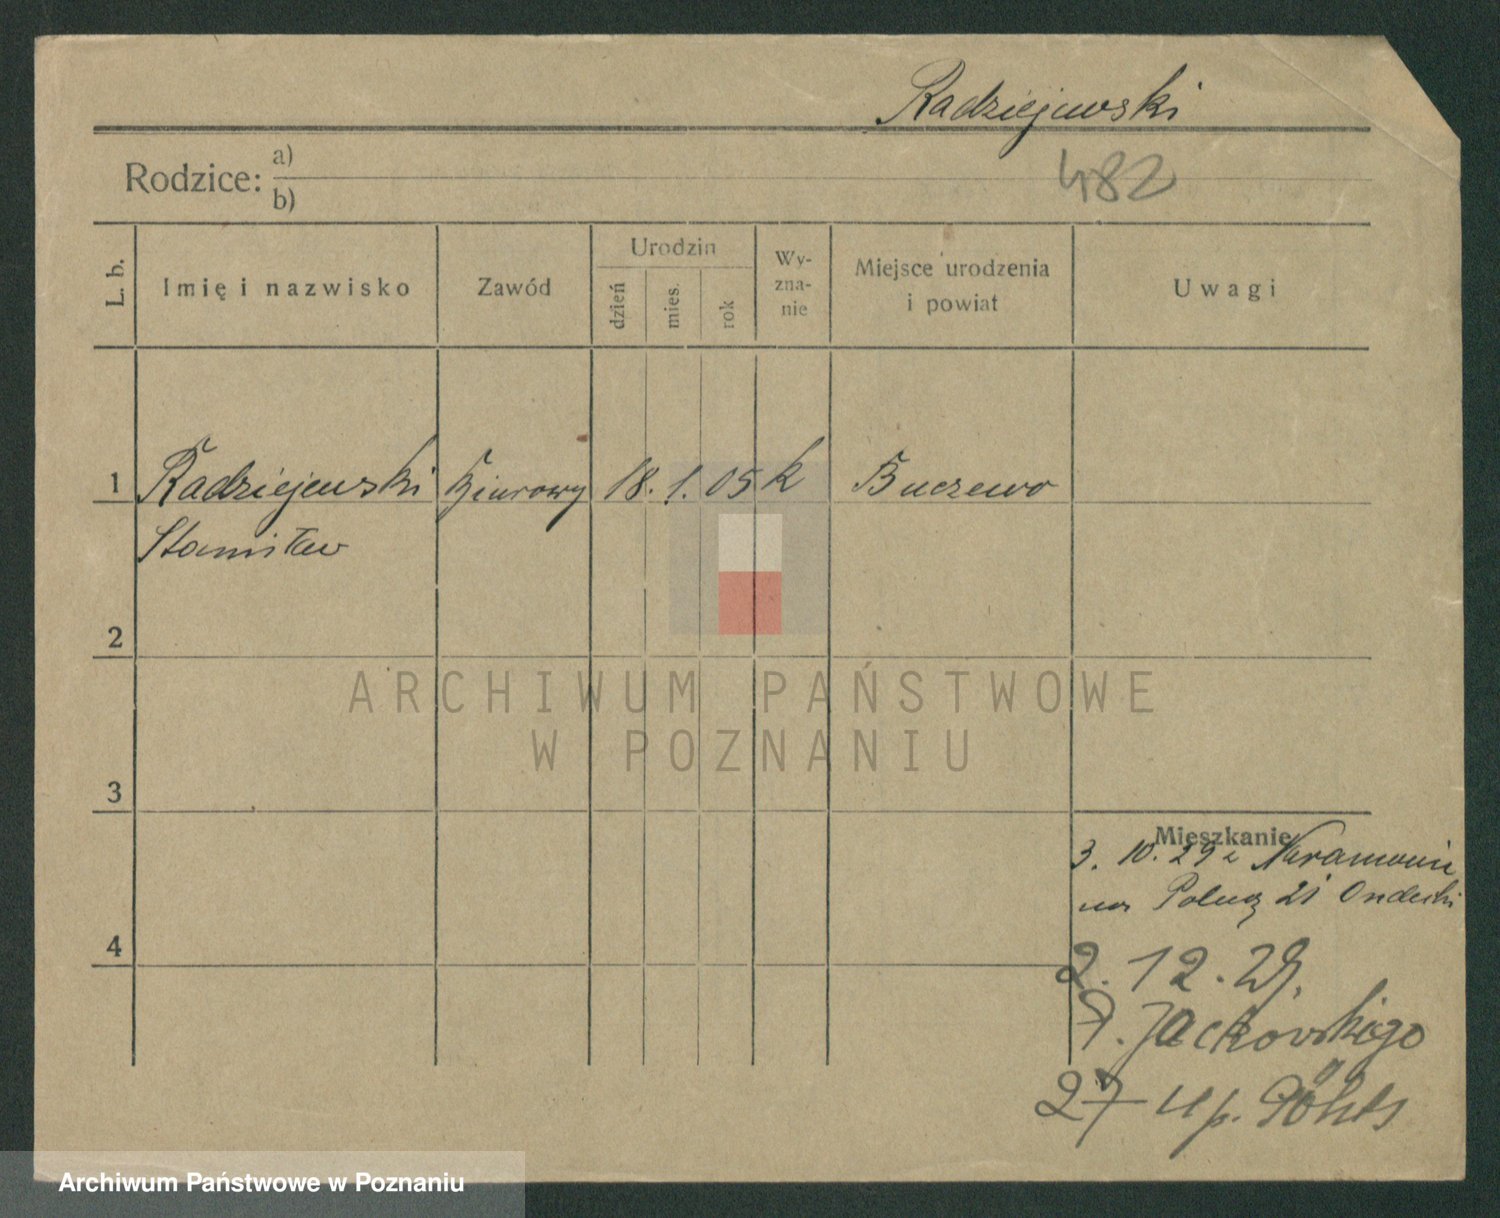 Radziejewski
482
Rodzice: a)
b)
L. b.
Imię i nazwisko
Zawód
Urodzin
dzień
mies.
rok
Wy-
zna-
nie
Miejsce urodzenia
i powiat
Uwagi
1 Radziejewski biurowy 18. 1. 05 k Buczewo
Stanisław
2
ARCHIWUM PAŃSTWOWE
W POZNANIU
3
Mieszkanie
3. 10. 29 z
na Polną 21
4
2. 12. 29.
Jackowskiego
27 u p.
Archiwum Państwowe w Poznaniu